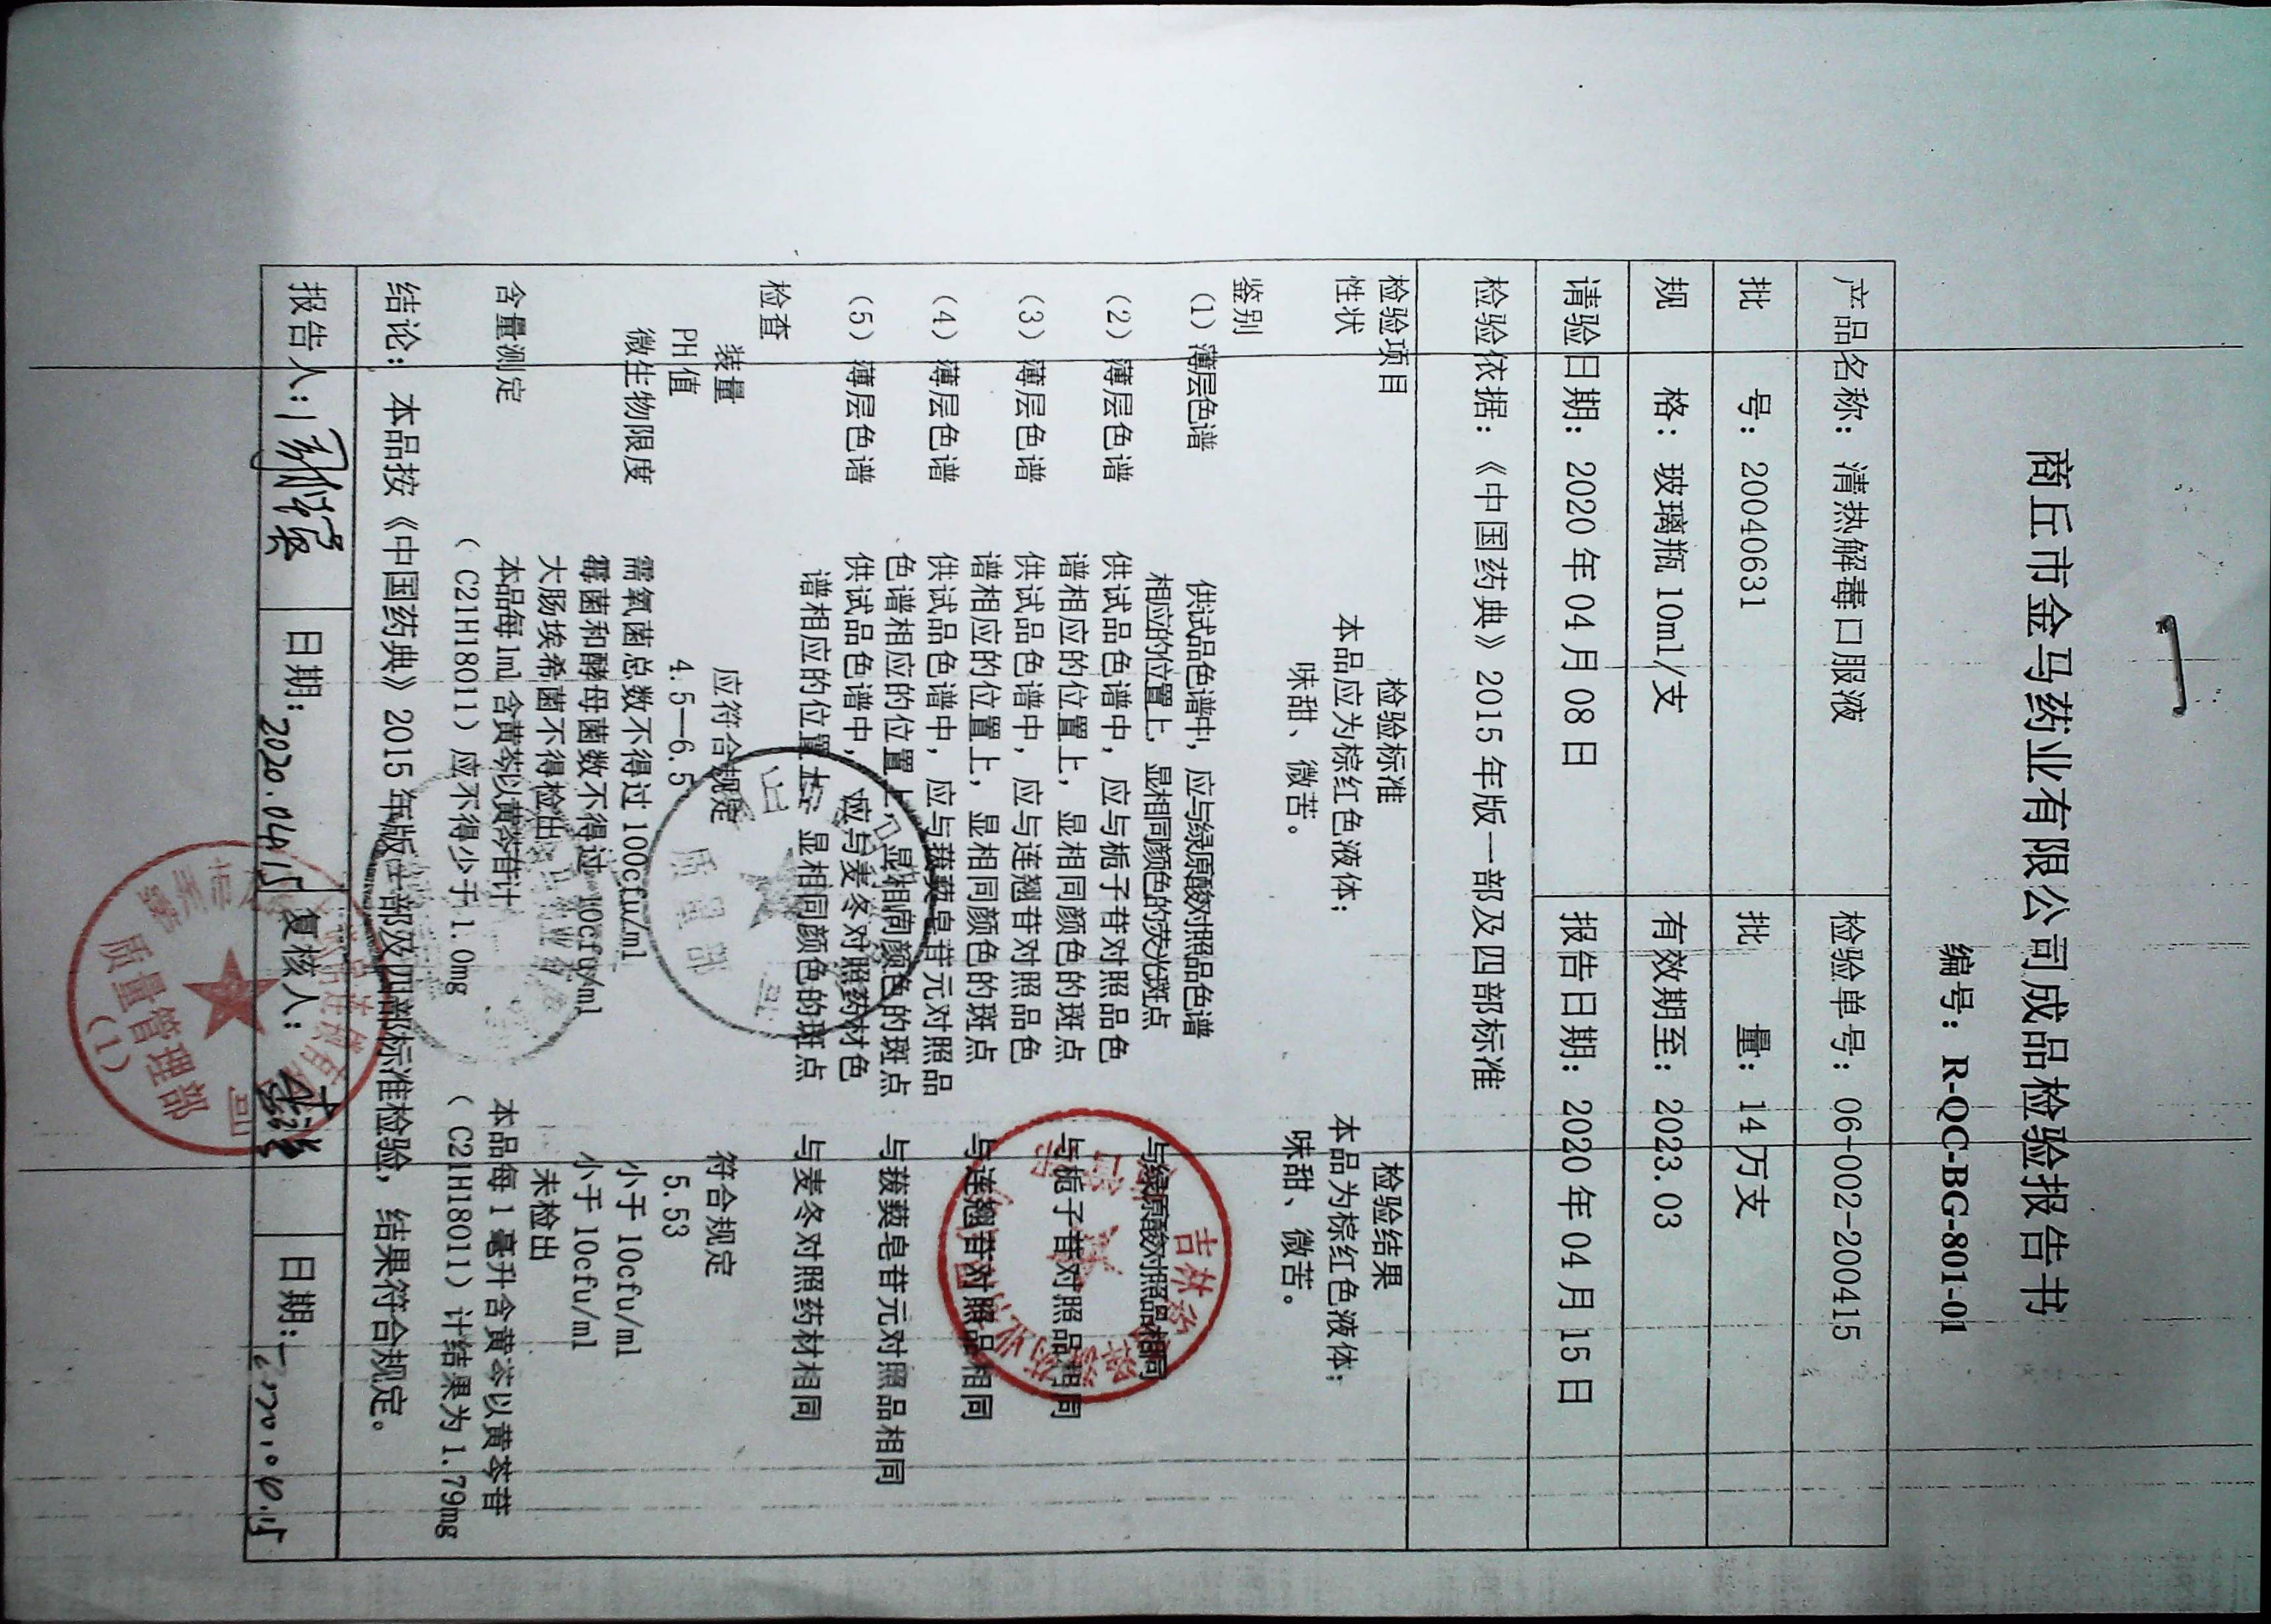 商丘市金马药业有限公司成品检验报告书
编号：R-QC-BG-801-01
产品名称：清热解毒口服液 检验单号：06-002-200415
批 号：20040631 批 量：14万支
规 格：玻璃瓶 10ml/支 有效期至：2023.03
请验日期：2020 年 04 月 08 日 报告日期：2020 年 04 月 15 日
检验依据：《中国药典》2015 年版一部及四部标准
检验项目 检验标准 检验结果
性状 本品应为棕红色液体； 本品为棕红色液体；
味甜、微苦。 味甜、微苦。
鉴别
（1）薄层色谱 供试品色谱中，应与绿原酸对照品色谱
相应的位置上，显相同颜色的荧光斑点 与绿原酸对照品相同
（2）薄层色谱 供试品色谱中，应与栀子苷对照品色
谱相应的位置上，显相同颜色的斑点 与栀子苷对照品相同
（3）薄层色谱 供试品色谱中，应与连翘苷对照品色
谱相应的位置上，显相同颜色的斑点 与连翘苷对照品相同
（4）薄层色谱 供试品色谱中，应与菝葜皂苷元对照品
色谱相应的位置上，显相同颜色的斑点 与菝葜皂苷元对照品相同
（5）薄层色谱 供试品色谱中，应与麦冬对照药材色
谱相应的位置上 显相同颜色的斑点 与麦冬对照药材相同
检查
装量 应符合规定 符合规定
PH值 4.5—6.5 5.53
微生物限度 需氧菌总数不得过 100cfu/ml 小于 10cfu/ml
霉菌和酵母菌数不得过 10cfu/ml 小于 10cfu/ml
大肠埃希菌不得检出 未检出
含量测定 本品每 1ml 含黄芩以黄芩苷计 本品每 1 毫升含黄芩以黄芩苷
（C21H18O11）应不得少于 1.0mg （C21H18O11）计结果为 1.79mg
结论：本品按《中国药典》2015 年版一部及四部标准检验，结果符合规定。
报告人： 日期：2020.04.15 复核人： 日期：2020.04.15
质量部
吉林
药业
质量管理部
（1）